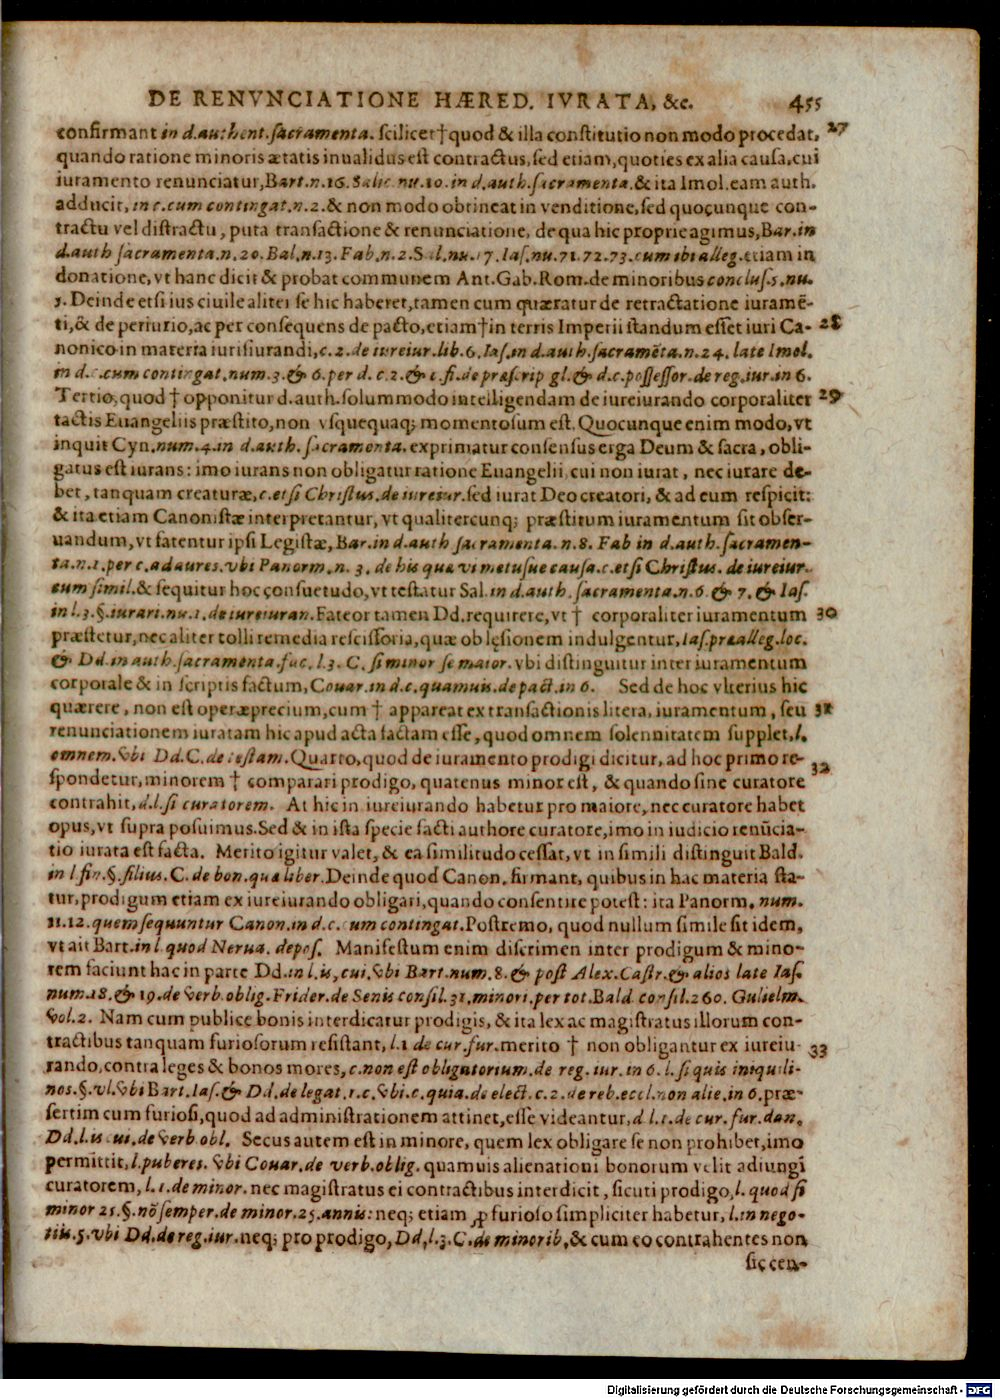 DE RENVNCIATIONE HÆRED. IVRATA, &c. 455
confirmant in d.authent.sacramenta. scilicet † quod & illa constitutio non modo procedat, 27
quando ratione minoris ætatis inualidus est contractus, sed etiam, quoties ex alia causa, cui
iuramento renunciatur, Bart.n.16. Salic.nu.10. in d.auth.sacramenta. & ita Imol. eam auth.
adducit, in c.cum contingat.n.2. & non modo obtineat in venditione, sed quocunque con-
tractu vel distractu, puta transactione & renunciatione, de qua hic proprie agimus, Bar.in
d.auth sacramenta.n.20. Bal.n.13. Fab.n.2. Sal.nu.17. Ias.nu.71.72.73.cum ibi alleg. etiam in
donatione, vt hanc dicit & probat communem Ant. Gab. Rom. de minoribus conclus.5.nu.
3. Deinde etsi ius ciuile aliter se hic haberet, tamen cum quæratur de retractatione iuramē-
ti, & de periurio, ac per consequens de pacto, etiam † in terris Imperii standum esset iuri Ca- 28
nonico in materia iurisiurandi, c.2. de iureiur.lib.6. Ias.in d.auth.sacramēta.n.24. late Imol.
in d.c.cum contingat.num.3.& 6.per d. c.2.& c.fi.de præscrip gl.& d.c.possessor.de reg.iur.in 6.
Tertio, quod † opponitur d.auth. solummodo intelligendam de iureiurando corporaliter 29
tactis Euangeliis præstito, non vsquequaq; momentosum est. Quocunque enim modo, vt
inquit Cyn.num.4.in d.auth.sacramenta. exprimatur consensus erga Deum & sacra, obli-
gatus est iurans: imo iurans non obligatur ratione Euangelii, cui non iurat, nec iurare de-
bet, tanquam creaturæ, c.etsi Christus.de iureiur. sed iurat Deo creatori, & ad eum respicit:
& ita etiam Canonistæ interpretantur, vt qualitercunq; præstitum iuramentum sit obser-
uandum, vt fatentur ipsi Legistæ, Bar.in d.auth sacramenta.n.8. Fab in d.auth.sacramen-
ta.n.1.per c.ad aures.vbi Panorm.n.3. de his quæ vi metusue causa.c.etsi Christus. de iureiur.
cum simil. & sequitur hoc consuetudo, vt testatur Sal. in d.auth.sacramenta.n.6 & 7. & Ias.
in l.3.§.iurari.nu.1.de iureiuran. Fateor tamen Dd. requirere, vt † corporaliter iuramentum 30
præstetur, nec aliter tolli remedia rescissoria, quæ ob lęsionem indulgentur, Ias.præalleg.loc.
& Dd.in auth.sacramenta.fac.l.3. C. si minor se maior. vbi distinguitur inter iuramentum
corporale & in scriptis factum, Couar.in d.c.quamuis.de pact.in 6. Sed de hoc vlterius hic
quærere, non est operæprecium, cum † appareat ex transactionis litera, iuramentum, seu 31
renunciationem iuratam hic apud acta factam esse, quod omnem solennitatem supplet, l.
omnem.vbi Dd.C.de testam. Quarto, quod de iuramento prodigi dicitur, ad hoc primo re-
spondetur, minorem † comparari prodigo, quatenus minor est, & quando sine curatore 32
contrahit, d.l.si curatorem. At hic in iureiurando habetur pro maiore, nec curatore habet
opus, vt supra posuimus. Sed & in ista specie facti authore curatore, imo in iudicio renūcia-
tio iurata est facta. Merito igitur valet, & ea similitudo cessat, vt in simili distinguit Bald.
in l fin.§.filius.C.de bon.quæ liber. Deinde quod Canon. firmant, quibus in hac materia sta-
tur, prodigum etiam ex iureiurando obligari, quando consentire potest: ita Panorm. num.
11.12. quem sequuntur Canon.in d.c.cum contingat. Postremo, quod nullum simile sit idem,
vt ait Bart. in l quod Nerua. depos. Manifestum enim discrimen inter prodigum & mino-
rem faciunt hac in parte Dd. in l.is, cui, vbi Bart.num.8.& post Alex.Castr.& alios late Ias.
num.18.& 19.de verb.oblig.Frider.de Senis consil.31,minori,per tot.Bald.consil.260. Gulielm.
vol.2. Nam cum publice bonis interdicatur prodigis, & ita lex ac magistratus illorum con-
tractibus tanquam furiosorum resistant, l.1 de cur.fur. merito † non obligantur ex iureiu- 33
rando, contra leges & bonos mores, c.non est obligatorium.de reg.iur.in 6. l.si quis iniquili-
nos.§.vl.vbi Bart.Ias.& Dd.de legat.1.c.vbi.c.quia.de elect.c.2.de reb.eccl.non alie.in 6. præ-
sertim cum furiosi, quod ad administrationem attinet, esse videantur, d l.1.de cur.fur.dan.
Dd.l.is cui.de verb.obl. Secus autem est in minore, quem lex obligare se non prohibet, imo
permittit, l.puberes. vbi Couar.de verb.oblig. quamuis alienationi bonorum velit adiungi
curatorem, l.1.de minor. nec magistratus ei contractibus interdicit, sicuti prodigo, l. quod si
minor 25.§.nō semper.de minor.25.annis: neq; etiam ꝓ furioso simpliciter habetur, l.in nego-
tiis.5.vbi Dd.de reg.iur. neq; pro prodigo, Dd,l.3.C.de minorib, & cum eo contrahentes non
sic cen-
Digitalisierung gefördert durch die Deutsche Forschungsgemeinschaft - DFG